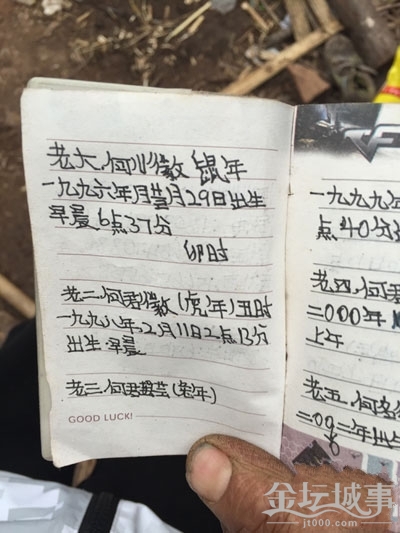 老大.何小徽 鼠年
一九九六年月29日出生
早晨6点37分
卯时
老二.何君徽(虎年)丑时
一九九八年2月11日2点13分
出生早晨
老三.何君(兔年)
GOOD LUCK!
一九九九年
点40分
老四.何君
二000年
上午
老五.何
二0二年出
金坛城事
jt000.com